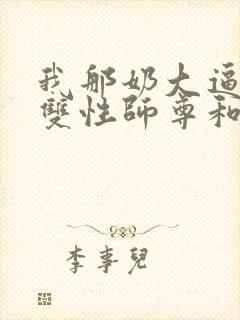 我那奶大逼
雙性師尊和
李事兒